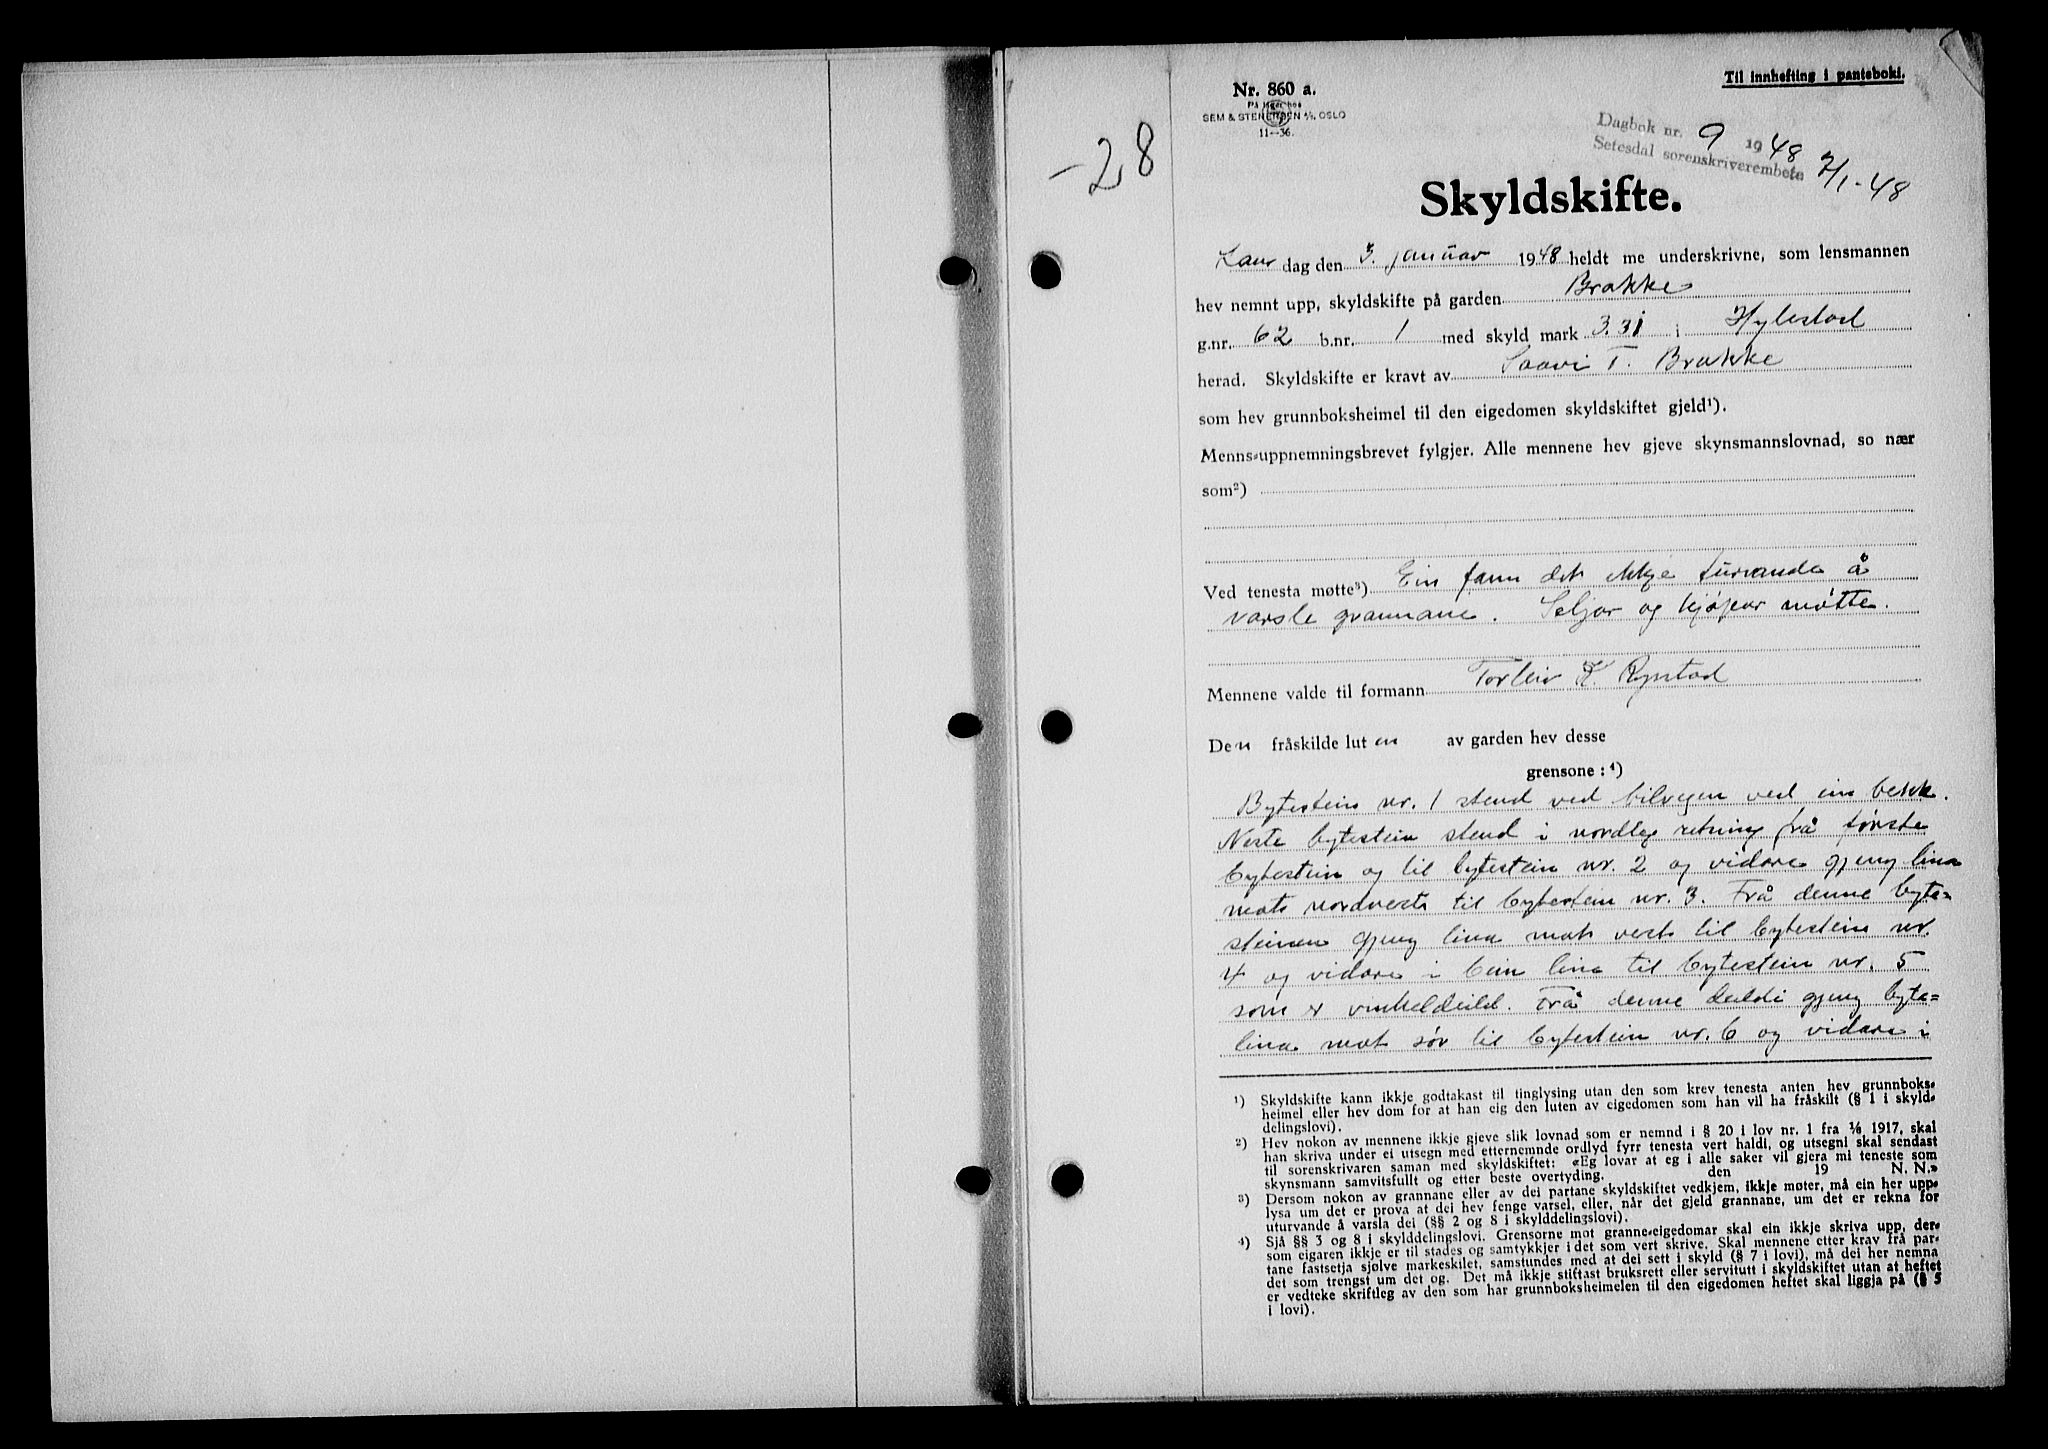 Til innhefting i panteboki.
Nr. 860 a.
På lager hos
SEM & STENERSEN A/S, OSLO
11—36.
Dagbok nr. 9 1948
Setesdal sorenskriverembete
7/1-48
-28
Skyldskifte.
Laur dag den 3. januar 1948 heldt me underskrivne, som lensmannen
hev nemnt upp, skyldskifte på garden Brokke
g.nr. 62 b.nr. 1 med skyld mark 3.31 i Hylestad
herad. Skyldskifte er kravt av T. Brokke
som hev grunnboksheimel til den eigedomen skyldskiftet gjeld¹).
Menns-uppnemningsbrevet fylgjer. Alle mennene hev gjeve skynsmannslovnad, so nær
som²)
Ved tenesta møtte³) Ein fann det ikkje turvande å
varsle grannane. Seljar og kjøpar møtte.
Mennene valde til formann Torleiv K. Rysstad
Den fråskilde luten av garden hev desse
grensone: ⁴)
Bytestein nr. 1 stend ved bilvegen ved ein bekk.
Neste bytestein stend i nordleg retning frå første
bytestein og til bytestein nr. 2 og vidare gjeng lina
mot nordvest til bytestein nr. 3. Frå denne byte=
steinen gjeng lina mot vest til bytestein nr.
4 og vidare i bein line til bytestein nr. 5
som er vinkeldeild. Frå denne deildi gjeng byte=
lina mot sør til bytestein nr. 6 og vidare i
¹) Skyldskifte kann ikkje godtakast til tinglysing utan den som krev tenesta anten hev grunnboks-
heimel eller hev dom for at han eig den luten av eigedomen som han vil ha fråskilt (§ 1 i skyld-
delingslovi).
²) Hev nokon av mennene ikkje gjeve slik lovnad som er nemnd i § 20 i lov nr. 1 fra 1/6 1917, skal
han skriva under ei utsegn med etternemnde ordlyd fyrr tenesta vert haldi, og utsegni skal sendast
til sorenskrivaren saman med skyldskiftet: «Eg lovar at eg i alle saker vil gjera mi teneste som
skynsmann samvitsfullt og etter beste overtyding. den 19 N. N.»
³) Dersom nokon av grannane eller av dei partane skyldskiftet vedkjem, ikkje møter, må ein her upp-
lysa um det er prova at dei hev fenge varsel, eller, når det gjeld grannane, um det er rekna for
uturvande å varsla dei (§§ 2 og 8 i skylddelingslovi).
⁴) Sjå §§ 3 og 8 i skylddelingslovi. Grensorne mot granne-eigedomar skal ein ikkje skriva upp, der-
som eigaren ikkje er til stades og samtykkjer i det som vert skrive. Skal mennene etter krav frå par-
tane fastsetja sjølve markeskilet, samstundes med at dei sett i skyld (§ 7 i lovi), må dei her nemna
det som trengst um det og. Det må ikkje stiftast bruksrett eller servitutt i skyldskiftet utan at heftet
er vedteke skriftleg av den som har grunnboksheimelen til den eigedomen heftet skal liggja på (§ 5
i lovi).